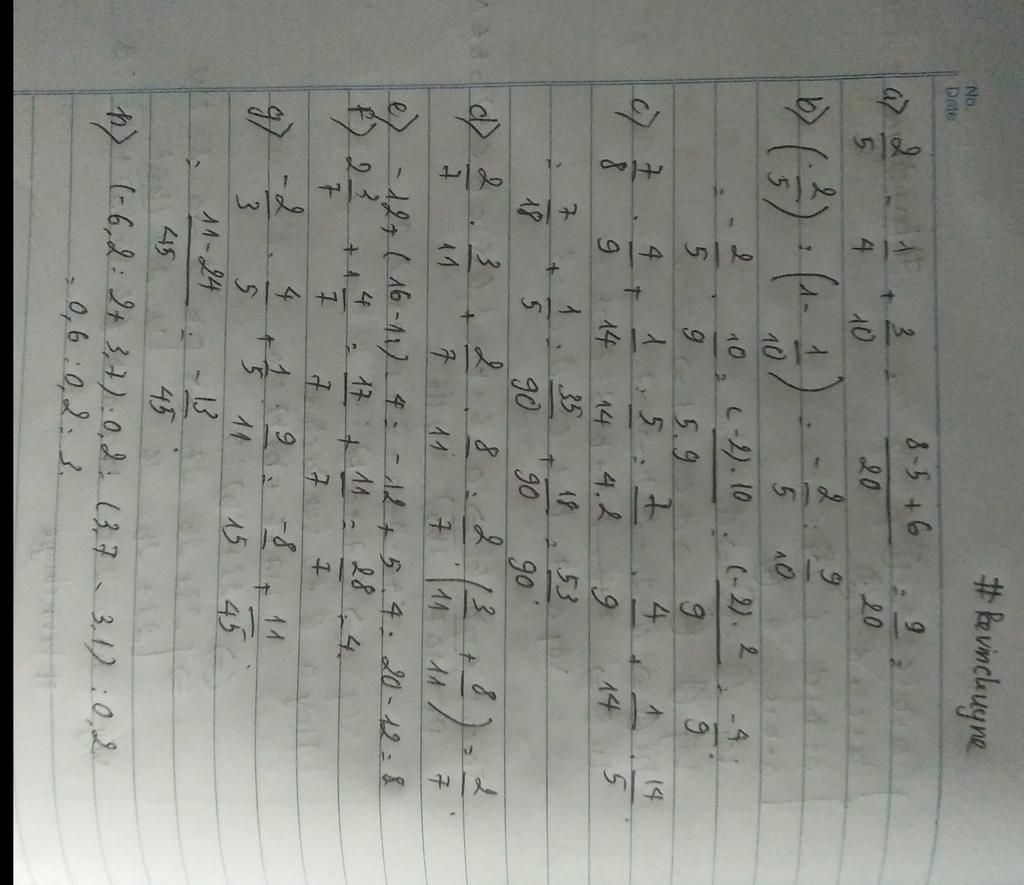 No.
Date
# Bavinchuyne
a) 2/5 - 1/4 + 3/10 = (8-5+6)/20 = 9/20 =
b) (-2/5) : (1 - 1/10) = -2/5 : 9/10
= -2/5 . 10/9 = (-2).10/5.9 = (-2).2/9 = -4/9.
c) 7/8 . 4/9 + 1/14 : 5/14 = 7/4.2 . 4/9 + 1/14 . 14/5
= 7/18 + 1/5 = 35/90 + 18/90 = 53/90.
d) 2/7 . 3/11 + 2/7 . 8/11 = 2/7 . (3/11 + 8/11) = 2/7.
e) -12 + (16-11) . 4 = -12 + 5 . 4 = 20 - 12 = 8
f) 2 3/7 + 1 4/7 = 17/7 + 11/7 = 28/7 = 4.
g) -2/3 . 4/5 + 1/5 : 9/11 = -8/15 + 11/45
= 11-24/45 = -13/45.
h) (-6,2 : 2 + 3,7) : 0,2 = (3,7 - 3,1) : 0,2
= 0,6 : 0,2 = 3.